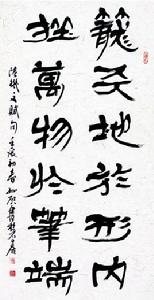 籠天地於形內
挫萬物於筆端
陸機文賦句 壬辰初春